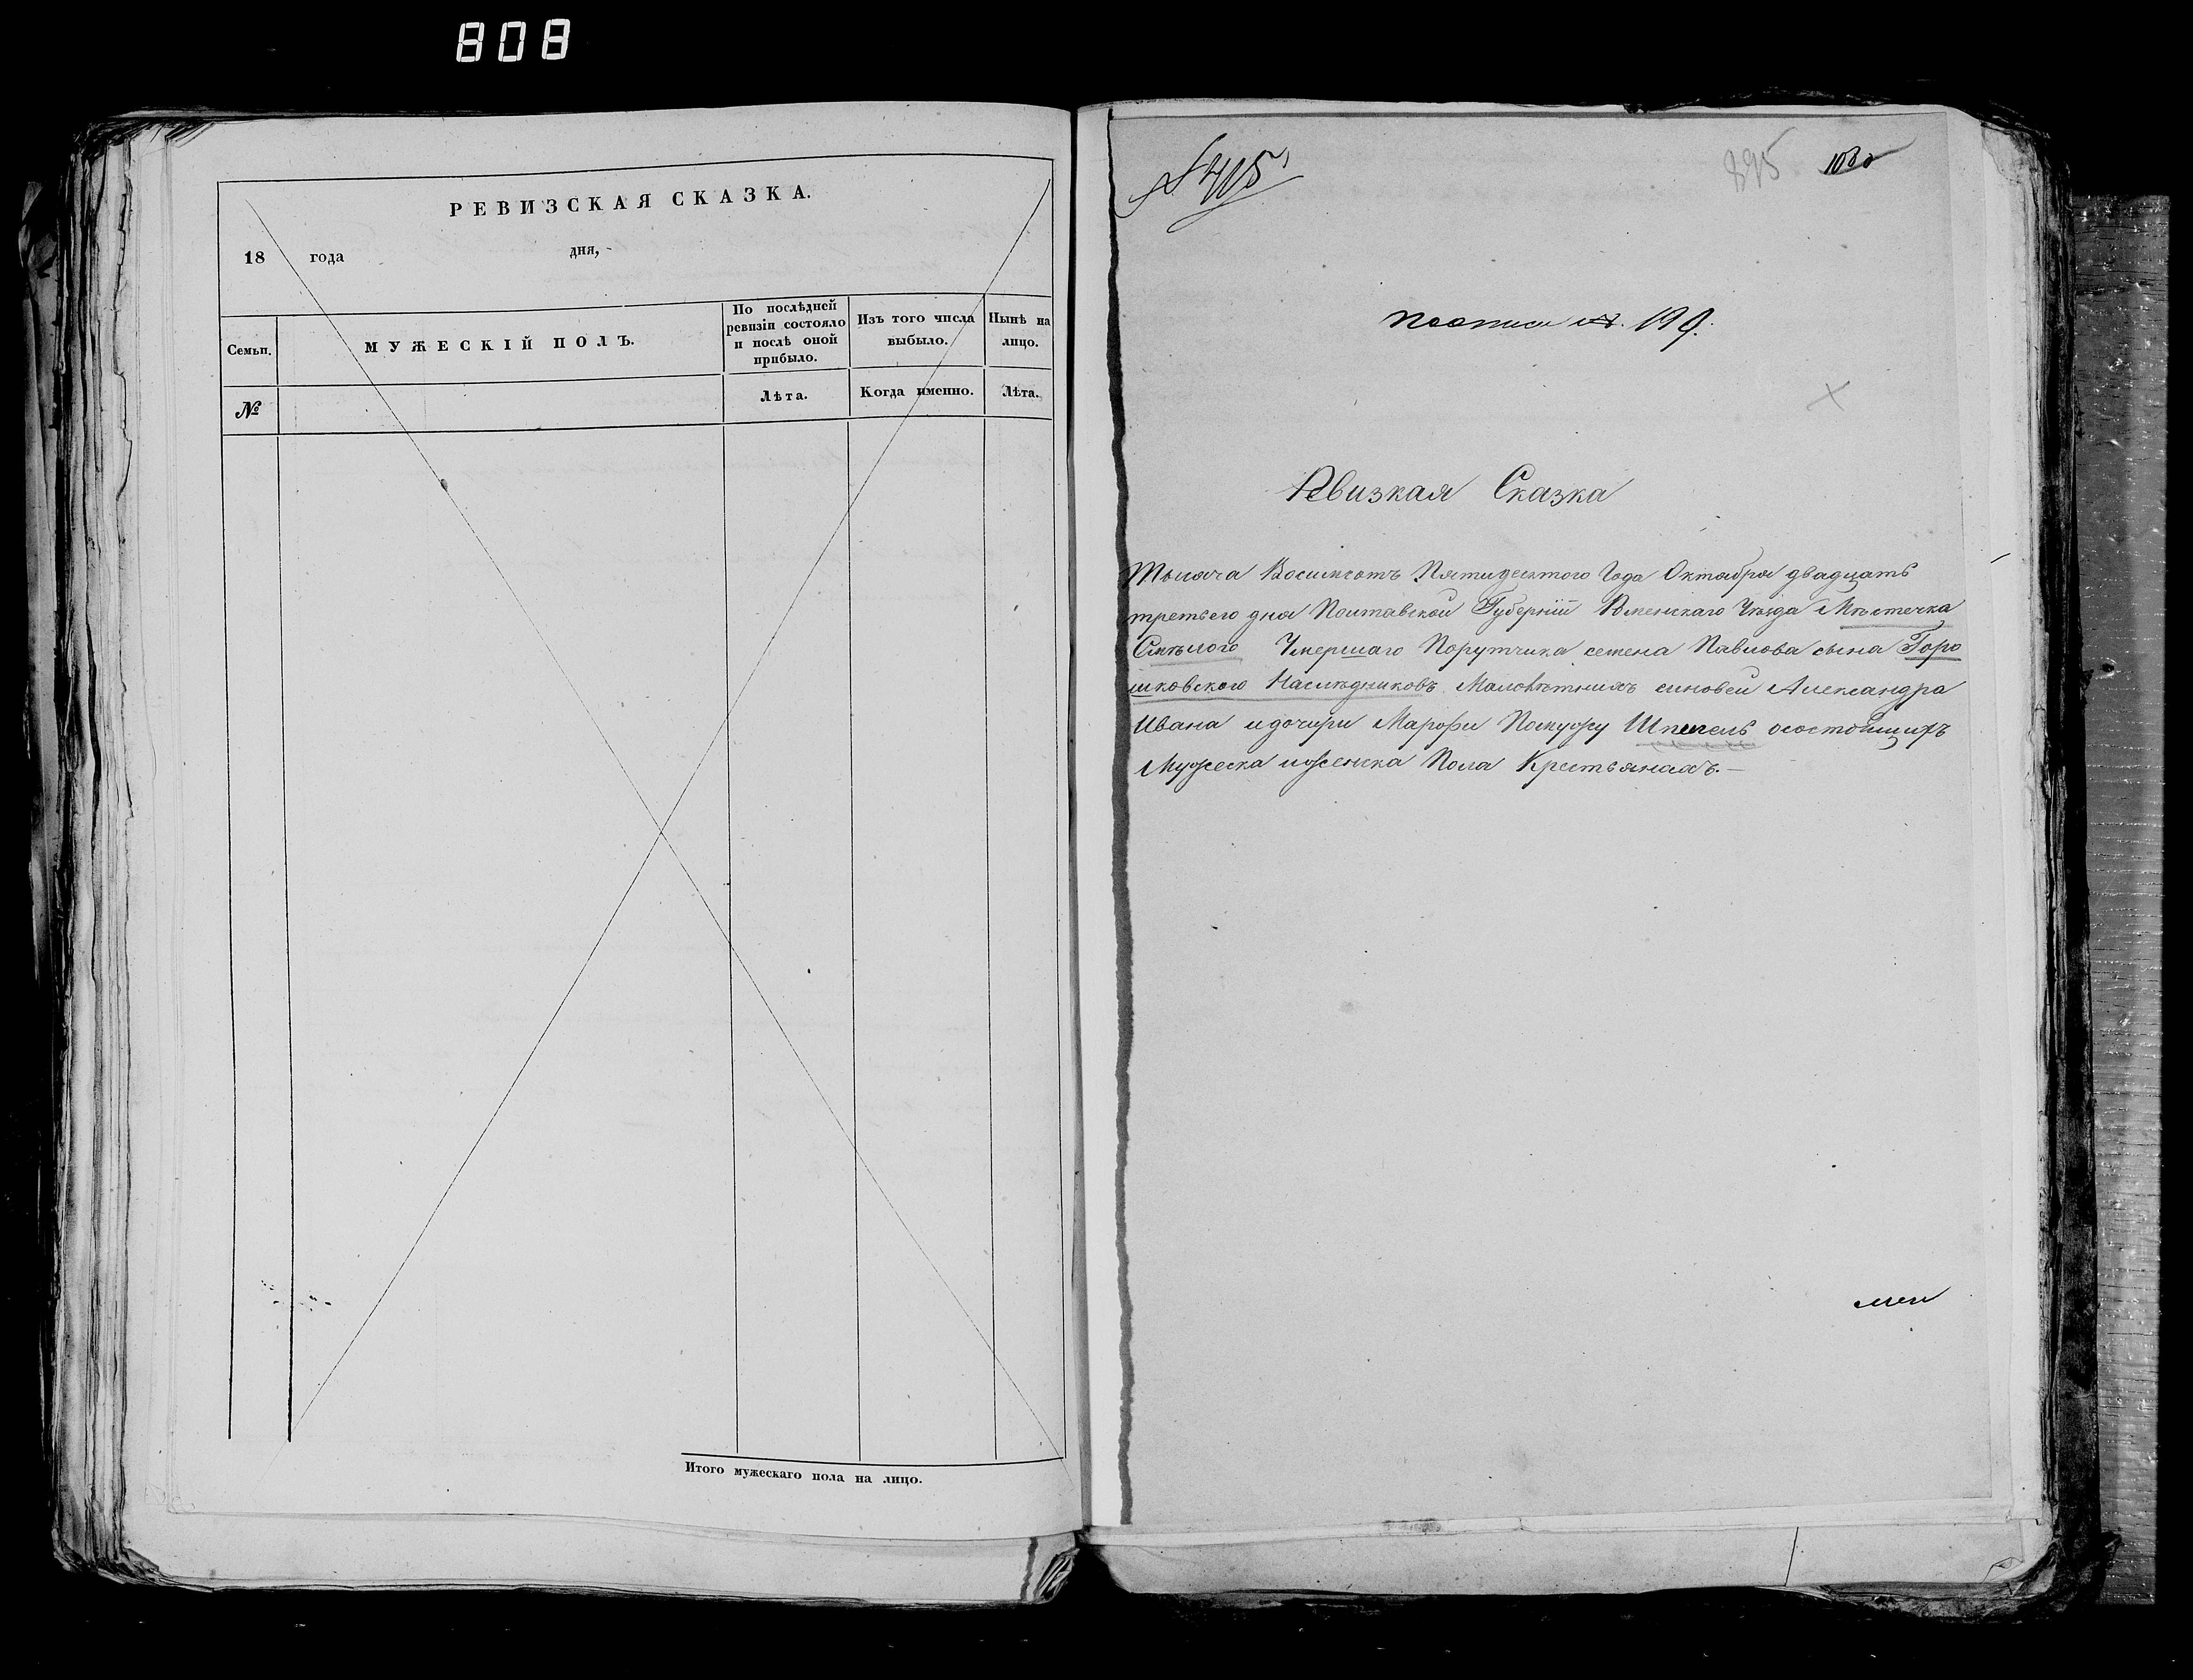 808
РЕВИЗСКАЯ СКАЗКА.
18 года дня,
Семьи. МУЖЕСКІЙ ПОЛЪ. По послѣдней ревизіи состояло и послѣ оной прибыло. Изъ того числа выбыло. Нынѣ на лицо.
№ Лѣта. Когда именно. Лѣта.
Итого мужескаго пола на лицо.
№ 415
895
По описи № 199.
Ревизкая Сказка
Тысяча Восимсотъ Пятидесятого Года Октября двадцать
третьего дня Полтавской Губерніи Роменскаго Уѣзда Мѣстечка
Смѣлого Умершаго Порутчика семена Павлова сына Горо
шковского Наслѣдниковъ Малолѣтнихъ синовей Александра
Ивана и дочери Марфи Помужу Шпигель осостоящихъ
Мужеска иженска Пола Крестьянахъ. —